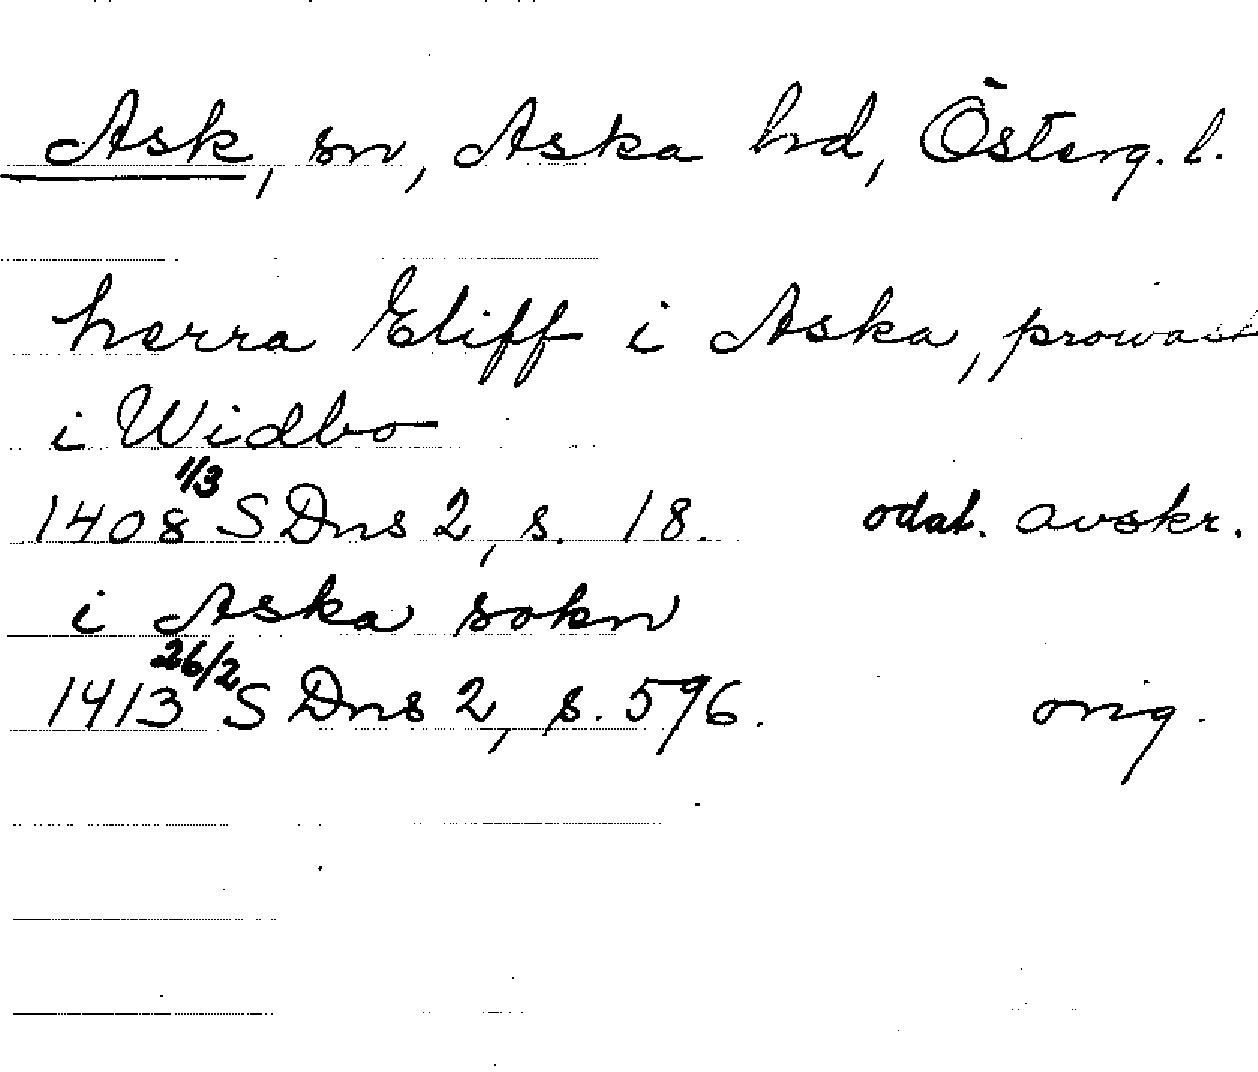 Ask, sn, Aska hd, Österg. l.
herra Eliff i Aska, prowast
i Widbo
1408 1/3 SDns 2, s. 18. odat. avskr.
i Aska sokn
1413 26/2 SDns 2, s. 596. orig.